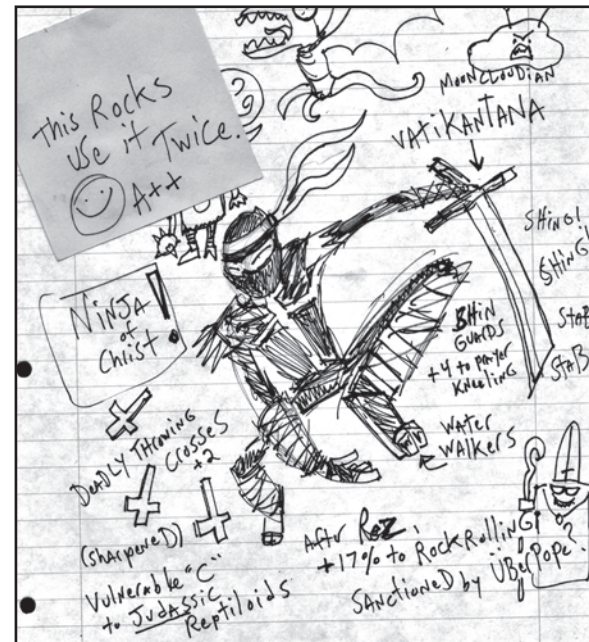 This Rocks
Use it Twice.
A++
MOONCLOUDIAN
VATIKANTANA
SHING!
SHING!
STAB
STAB
NINJA
of
Christ!
SHIN
GUARDS
+4 to PRAYER
KNEELING
WATER
WALKERS
DEADLY THROWING
CROSSES
+2
(SHARPENED)
Vulnerable "C"
to JUDASSIC
Reptiloids
After Rez,
+17% to ROCK ROLLING!
SANCTIONED by ÜBERPOPE?